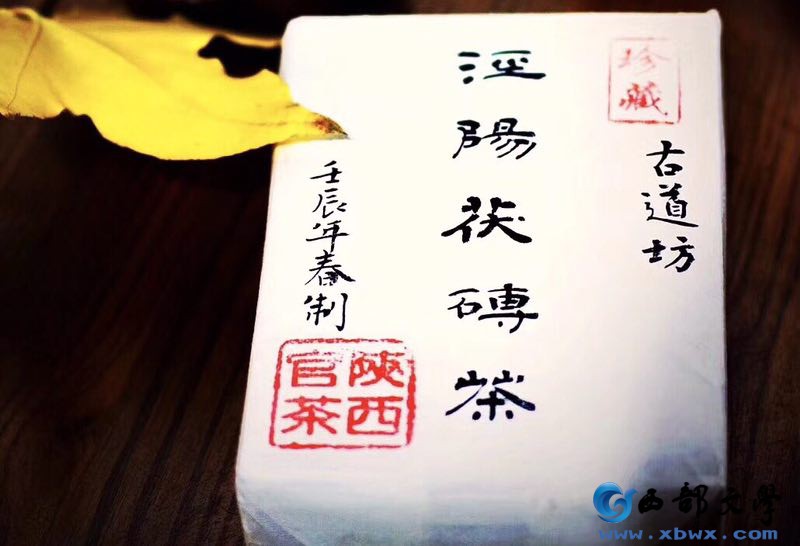 珍藏
古道坊
涇陽茯磚茶
壬辰年春制
陝西官茶
西部文學
www.xbwx.com